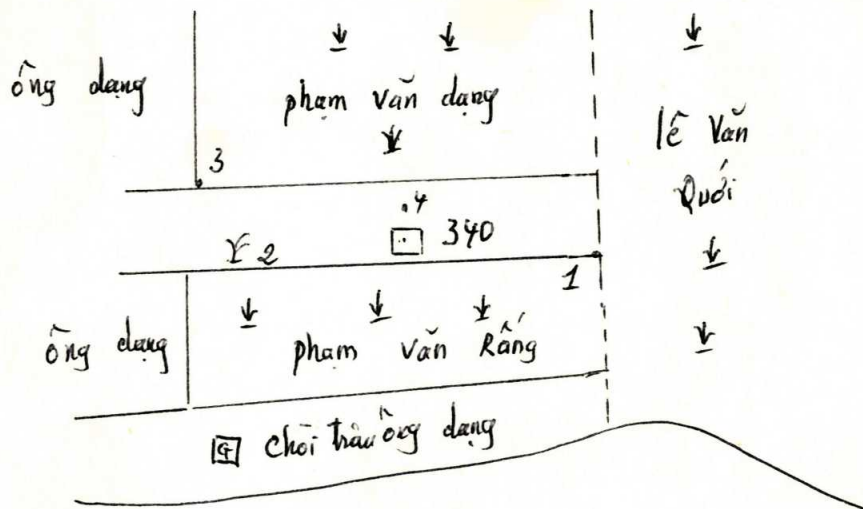 ông dạng
phạm văn dạng
lê Văn
Quới
3
.4
340
2
1
ông dạng
phạm văn Rắng
chòi trâu ông dạng